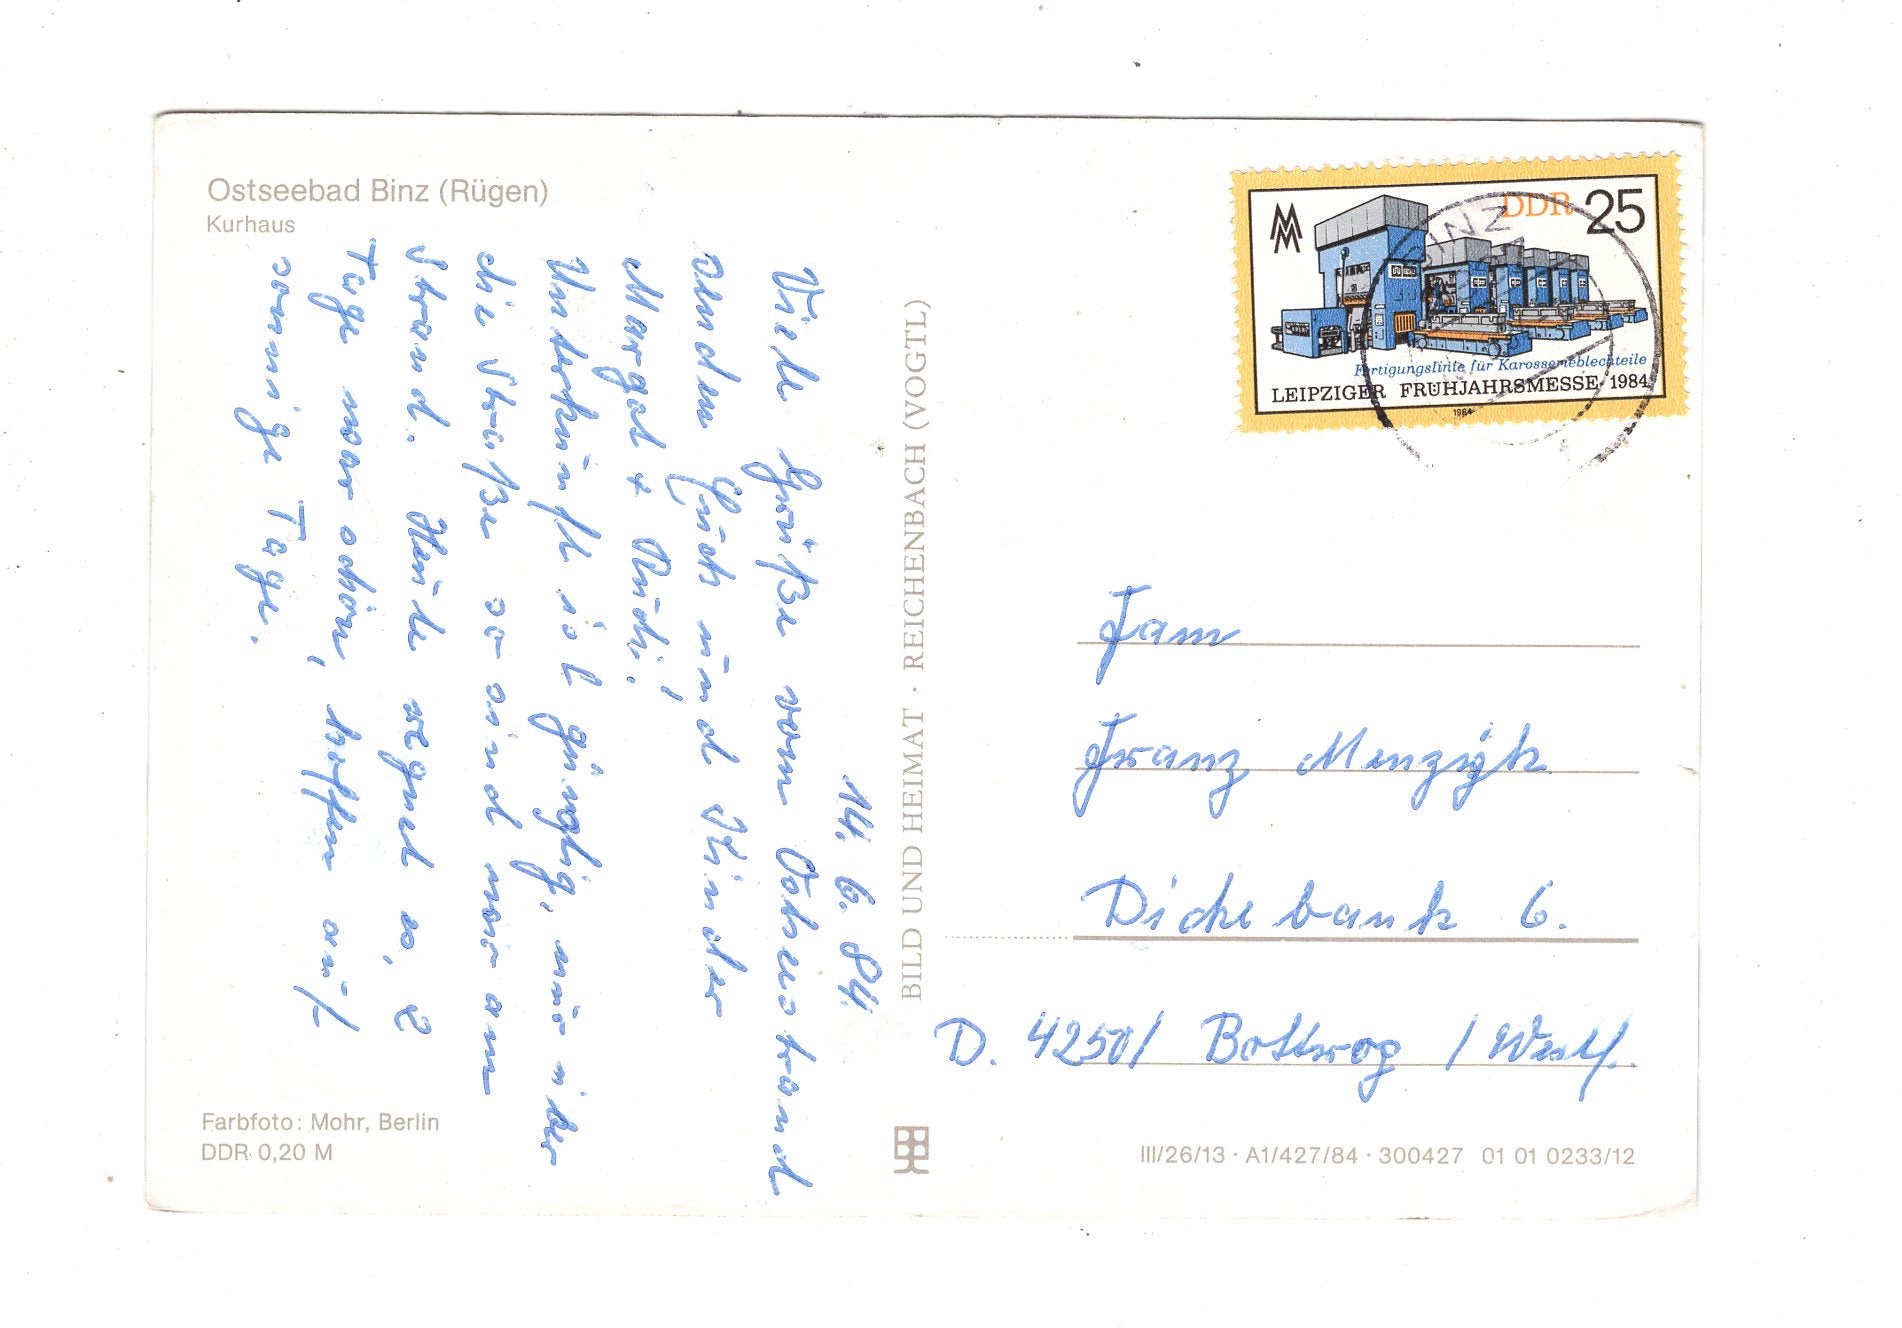 Ostseebad Binz (Rügen)
Kurhaus
14. 6. 84.
Viele Grüße vom Ostseestrand
senden Euch und Kinder
Margot + Rudi!
Unterkunft ist günstig, nur über
die Straße so sind wir am
Strand. Heute regnet es, 2
Tage war schön, hoffen auf
sonnige Tage.
Farbfoto: Mohr, Berlin
DDR 0,20 M
BILD UND HEIMAT · REICHENBACH (VOGTL)
DDR 25
MM
BINZ
Fertigungslinie für Karosserieblechteile
LEIPZIGER FRÜHJAHRSMESSE 1984
1984
Fam
Franz Menzyk
Dickebank 6.
D. 4250/ Bottrop / Westf.
III/26/13 · A1/427/84 · 300427 01 01 0233/12